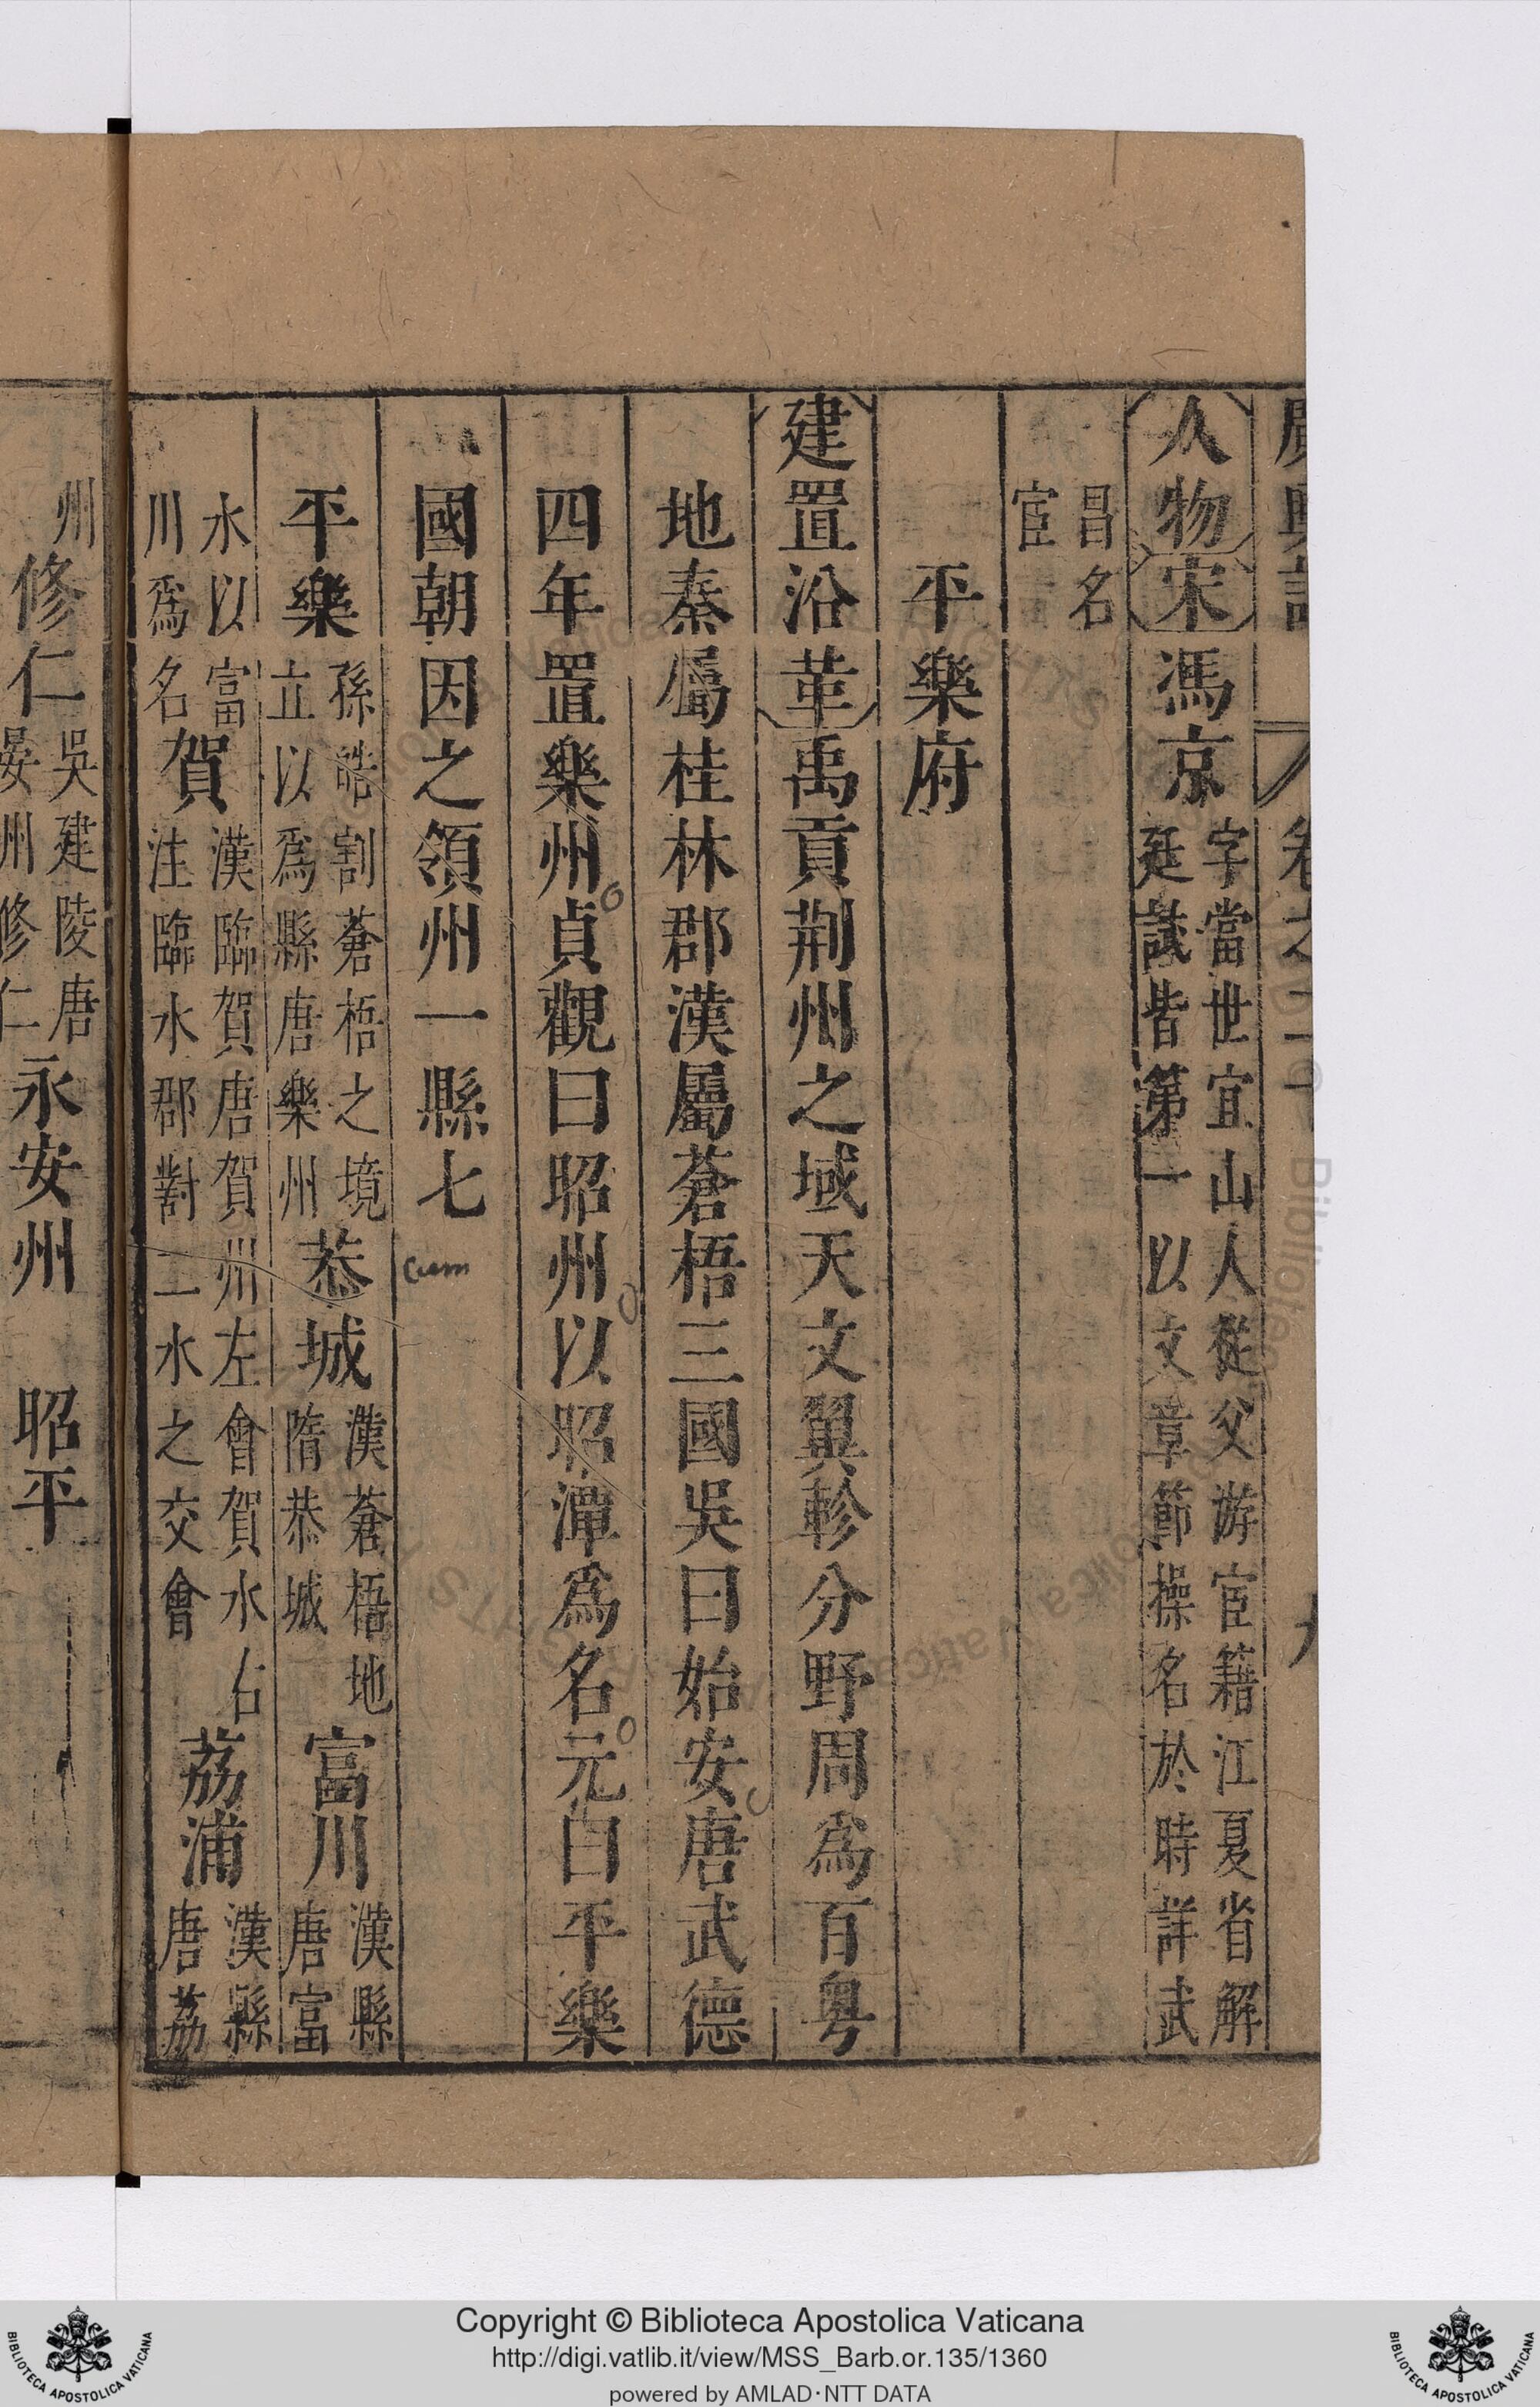 廣輿記 卷之二十 九
人物 宋 馮京 字當世宜山人從父游宦籍江夏省解
廷試皆第一以文章節操名於時詳武
昌名
宦
平樂府
建置沿革 禹貢荆州之域天文翼軫分野周爲百粤
地秦屬桂林郡漢屬蒼梧三國吳曰始安唐武德
四年置樂州貞觀曰昭州以昭潭爲名元曰平樂
國朝因之領州一縣七
cum
平樂 孫皓割蒼梧之境
立以爲縣唐樂州
恭城 漢蒼梧地
隋恭城
富川 漢縣
唐富
水以富
川爲名
賀 漢臨賀唐賀州左會賀水右
注臨水郡對二水之交會
荔浦 漢縣
唐荔
州
修仁 吳建陵唐
晏州修仁
永安州 昭平
Copyright © Biblioteca Apostolica Vaticana
http://digi.vatlib.it/view/MSS_Barb.or.135/1360
powered by AMLAD·NTT DATA
BIBLIOTECA APOSTOLICA VATICANA
BIBLIOTECA APOSTOLICA VATICANA